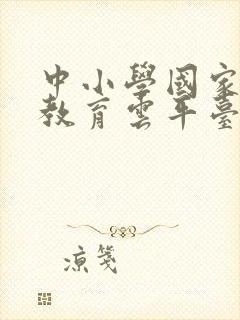 中小學國家
教育雲平臺
涼箋